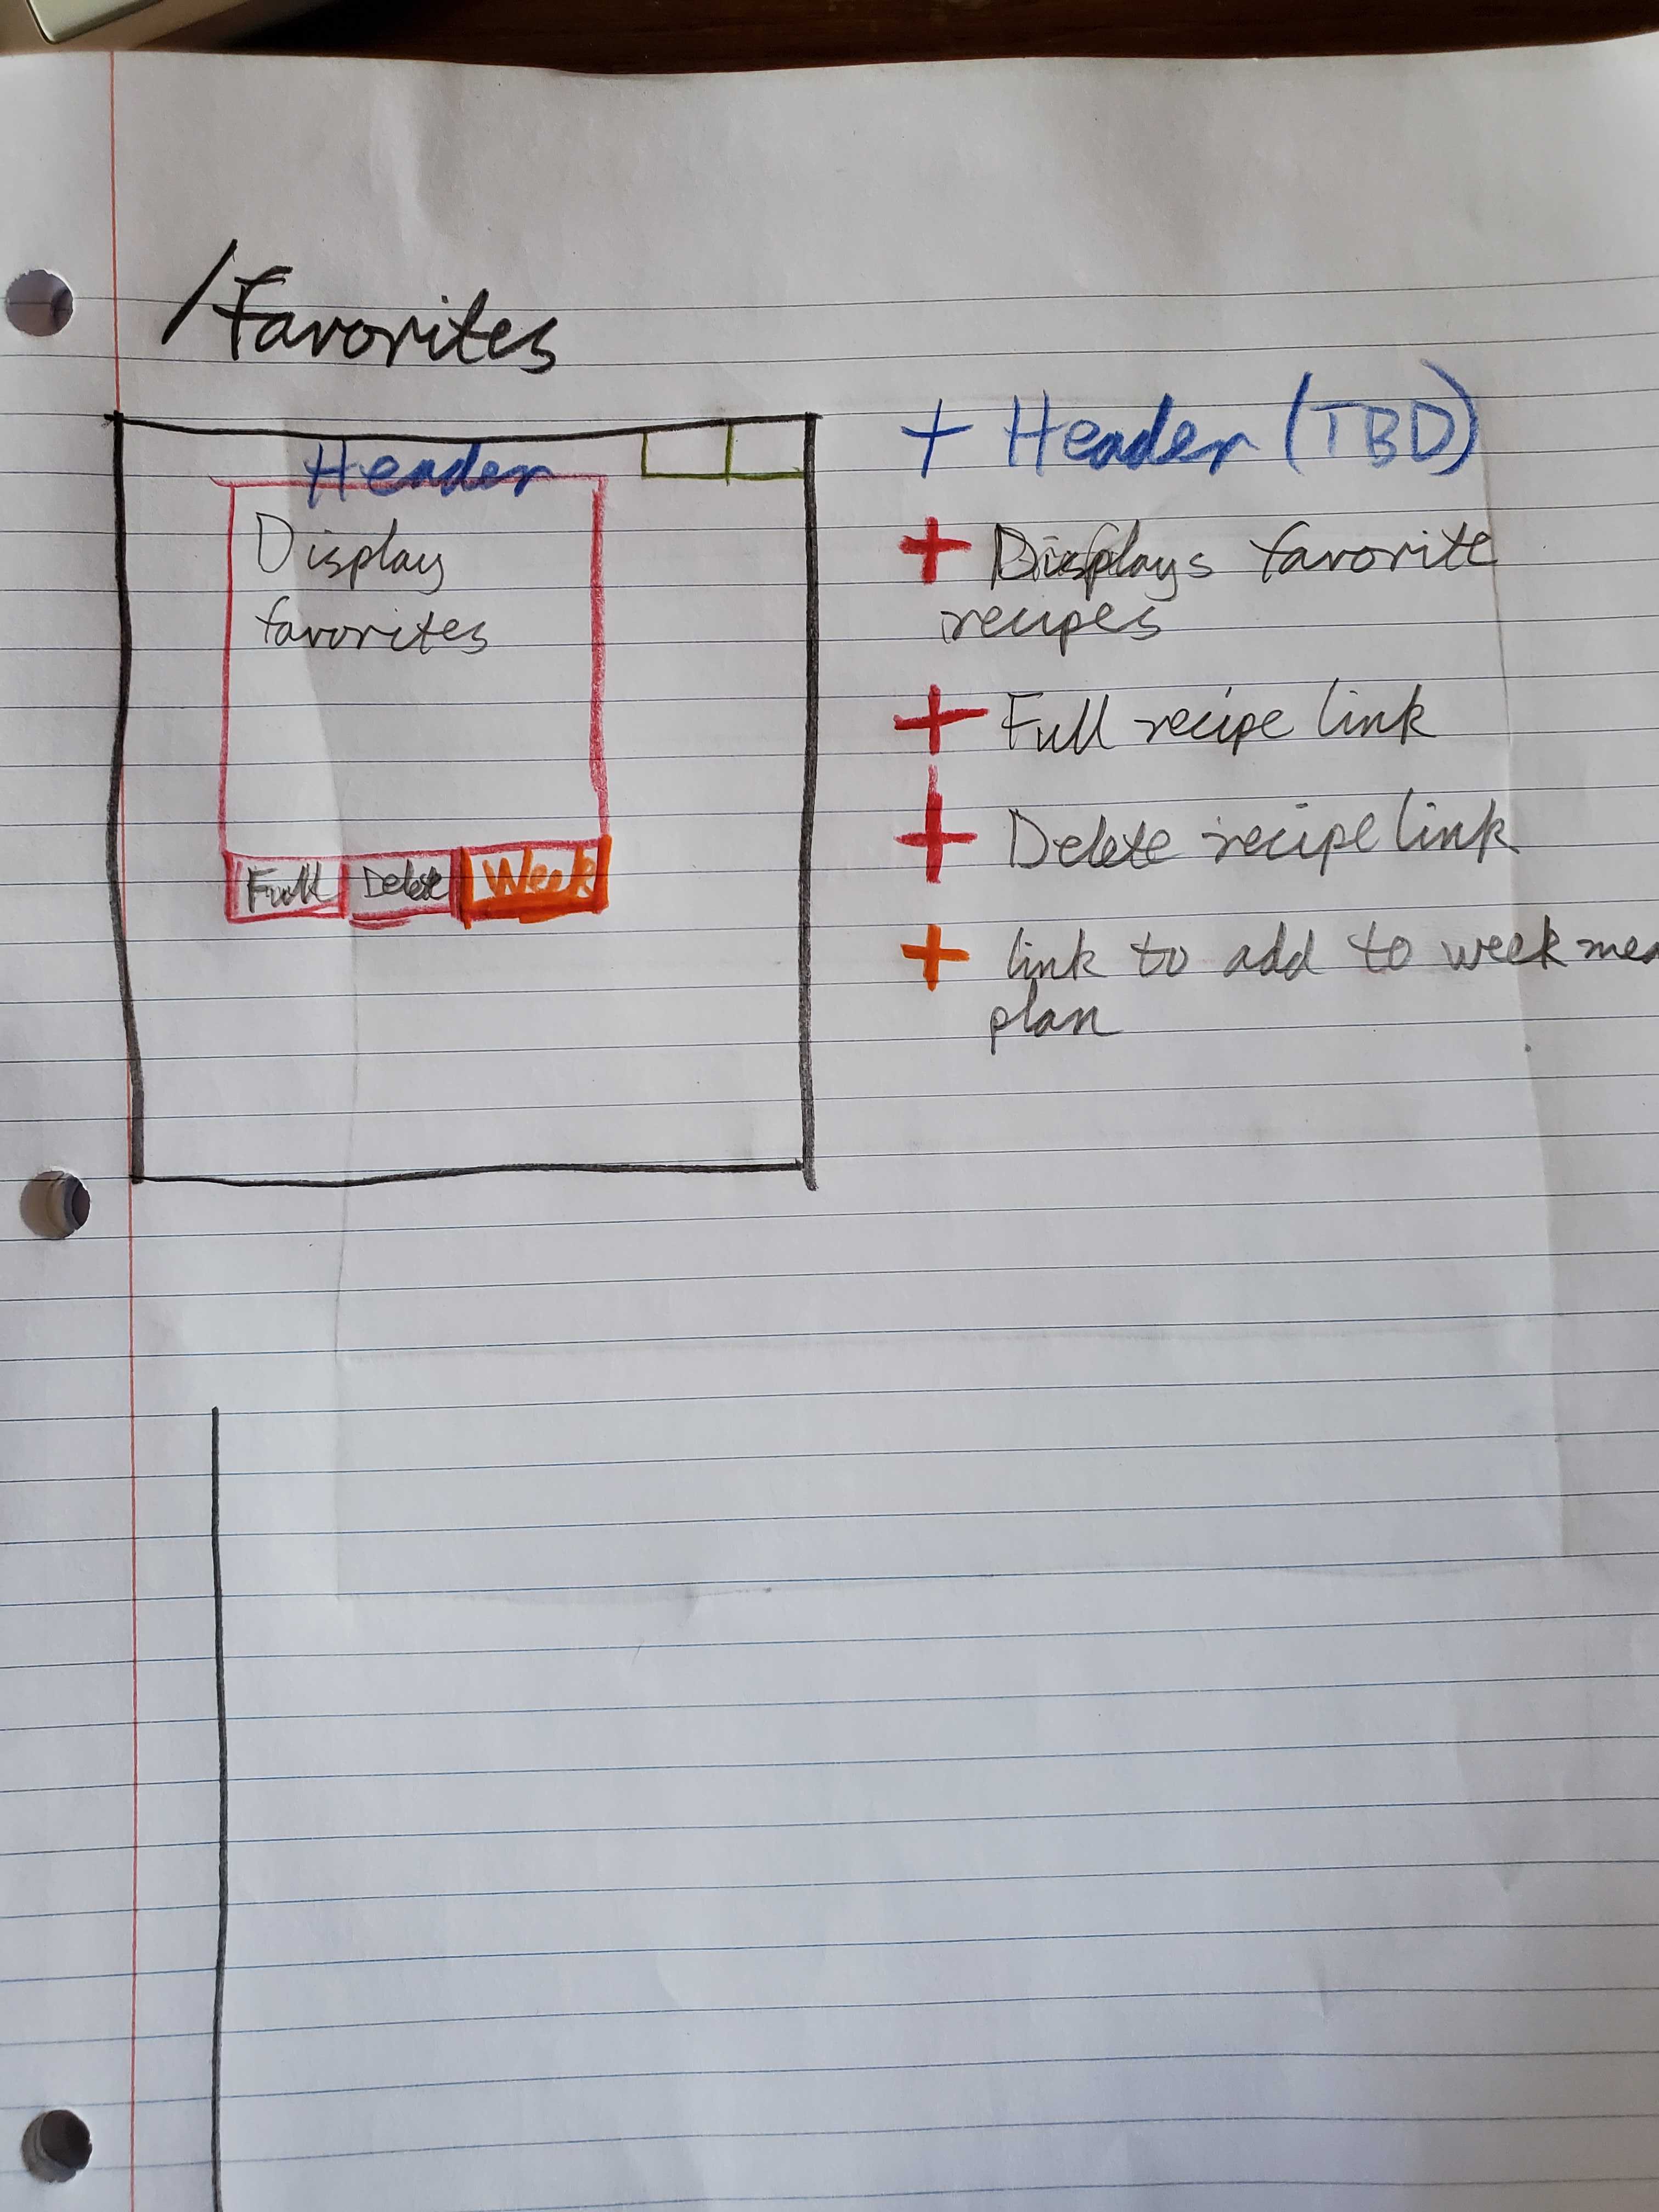 /favorites
Header
Display
favorites
Full Delete Week
+ Header (TBD)
+ Displays favorite
recipes
+ Full recipe link
+ Delete recipe link
+ link to add to week mea
plan